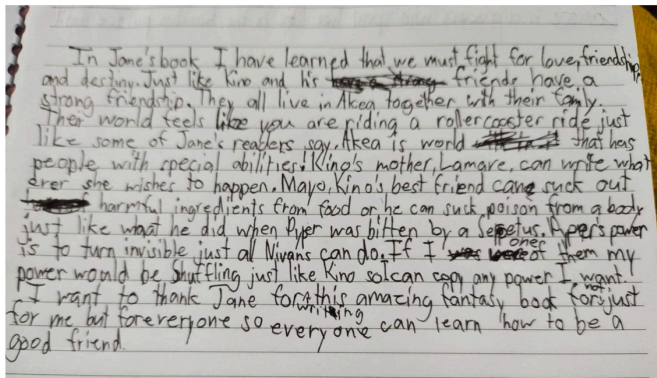 In Jane's book I have learned that we must fight for love, friendship
and destiny. Just like Kino and his friends have a
strong friendship. They all live in Akea together with their family.
Their world feels like you are riding a rollercoaster ride just
like some of Jane's readers say. Akea is world that has
people with special abilities. Kino's mother, Lamare, can write what
ever she wishes to happen. Mayo, Kino's best friend can suck out
harmful ingredients from food or he can suck poison from a body
just like what he did when Pyper was bitten by a Pyper's power
is to turn invisible just all Nivans can do. If I one of them my
power would be Shuffling just like Kino so I can copy any power I want.
I want to thank Jane for writing this amazing fantasy book not for just
for me but for everyone so everyone can learn how to be a
good friend.